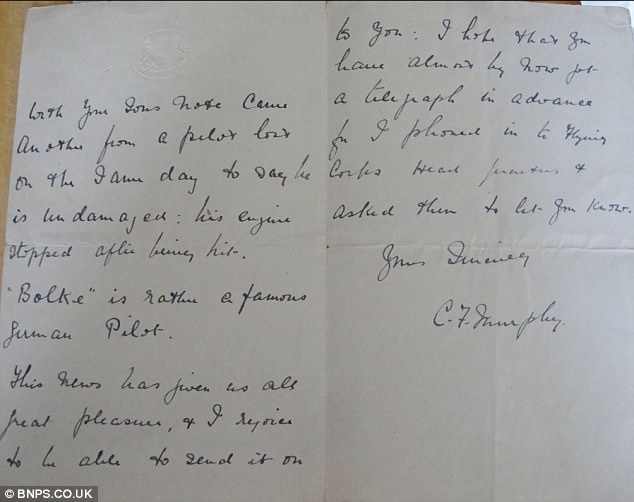 with your sons note came
another from a pilot lost
on the same day to say he
is undamaged: his engine
stopped after being hit.
"Bolke" is rather a famous
German Pilot.
This news has given us all
great pleasure, & I rejoice
to be able to send it on
to you: I hope that you
have almost by now got
a telegraph in advance
for I phoned in to Flying
Corps Head quarters &
asked them to let you know.
Yours Sincerely
C.F. Murphy.
© BNPS.CO.UK